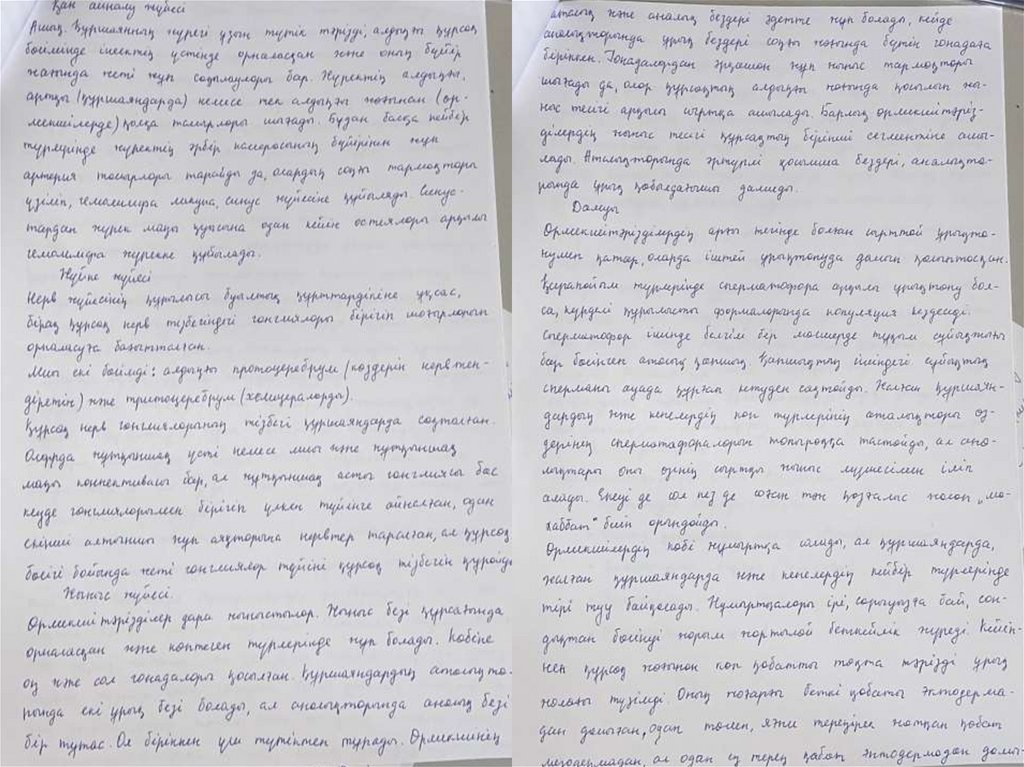 Қан айналу жүйесі
Ашық. Құршаянның жүрегі ұзын түтік тәрізді, алдыңғы құрсақ
бөлімінде ішектің үстінде орналасқан және оның бүйір
жағында жеті жұп саңылаулары бар. Жүректің алдыңғы,
артқы (құршаяндарда) немесе тек алдыңғы жағынан (өр-
мекшілерде) қолқа тамырлары шығады. Бұдан басқа кейбір
түрлерінде жүректің әрбір камерасының бүйірінен жұп
артерия тамырлары тарайды да, олардың соңғы тармақтары
үзіліп, гемолимфа лакуна, синус жүйесіне құйылады. Синус-
тардан жүрек маңы қуысына одан кейін остиялары арқылы
гемолимфа жүрекке құйылады.
Жүйке жүйесі
Нерв жүйесінің құрылысы буылтық құрттардікіне ұқсас,
бірақ құрсақ нерв тізбегіндегі ганглиялары бірігіп шоғырланып
орналасуға бағытталған.
Миы екі бөлімді: алдыңғы протоцеребрум (көздерін нервтен-
діретін) және тритоцеребрум (хелицераларды).
Құрсақ нерв ганглияларының тізбегі құршаяндарда сақталған.
Оларда жұтқыншақ үсті немесе миы және жұтқыншақ
маңы коннективасы бар, ал жұтқыншақ асты ганглиясы бас
кеуде ганглияларымен бірігіп үлкен түйінге айналған, одан
екінші алтыншы жұп аяқтарына нервтер таралған, ал құрсақ
бөлігі бойында жеті ганглиялар түйіні құрсақ тізбегін құрайды
Жыныс жүйесі.
Өрмекшітәрізділер дара жыныстылар. Жыныс безі құрсағында
орналасқан және көптеген түрлерінде жұп болады. Көбіне
оң және сол гонадалары қосылған. Құршаяндардың аталықта-
рында екі ұрық безі болады, ал аналықтарында аналық безі
бір тұтас. Ол біріккен үш түтіктен тұрады. Өрмекшінің
аталық және аналық бездері әдетте жұп болады, кейде
аналықтарында ұрық бездері соңғы жағында бүтін гонадаға
біріккен. Гонадалардан әрқашан жұп жыныс тармақтары
шығады да, олар құрсақтың алдыңғы жағында қосылып жы-
ныс тесігі арқылы сыртқа ашылады. Барлық өрмекшітәріз-
ділердің жыныс тесігі құрсақтың бірінші сегментіне ашы-
лады. Аталықтарында әртүрлі қосымша бездері, аналықта-
рында ұрық қабылдағышы дамиды.
Дамуы
Өрмекшітәрізділердің арғы тегінде болған сырттай ұрықта-
нумен қатар, оларда іштей ұрықтануда дамып қалыптасқан.
Қарапайым түрлерінде сперматофора арқылы ұрықтану бол-
са, күрделі құрылысты формаларында копуляция кездеседі.
Сперматофор ішінде белгілі бір мөлшерде тұқым сұйықтығы
бар бөлінген аталық қапшық. Қапшықтың ішіндегі сұйықтық
сперманы ауада құрғап кетуден сақтайды. Жалған құршаян-
дардың және кенелердің көп түрлерінің аталықтары өз-
дерінің сперматафораларын топыраққа тастайды, ал ана-
лықтары оны өзінің сыртқы жыныс мүшесімен іліп
алады. Екеуі де сол кезде соған тән қозғалыс жасап „ма-
хаббат“ биін орындайды.
Өрмекшілердің көбі жұмыртқа салады, ал құршаяндарда,
жалған құршаяндарда және кенелердің кейбір түрлерінде
тірі туу байқалады. Жұмыртқалары ірі, сарыуызға бай, сон-
дықтан бөлінуі жарым жартылай беткейлік жүреді. Кейін-
нен құрсақ жағынан көп қабатты тақта тәрізді ұрық
жолағы түзіледі. Оның жоғарғы беткі қабаты эктодерма-
дан дамыған, одан төмен, яғни тереңірек жатқан қабат
мезодермадан, ал одан ең терең қабат энтодермадан дамы-